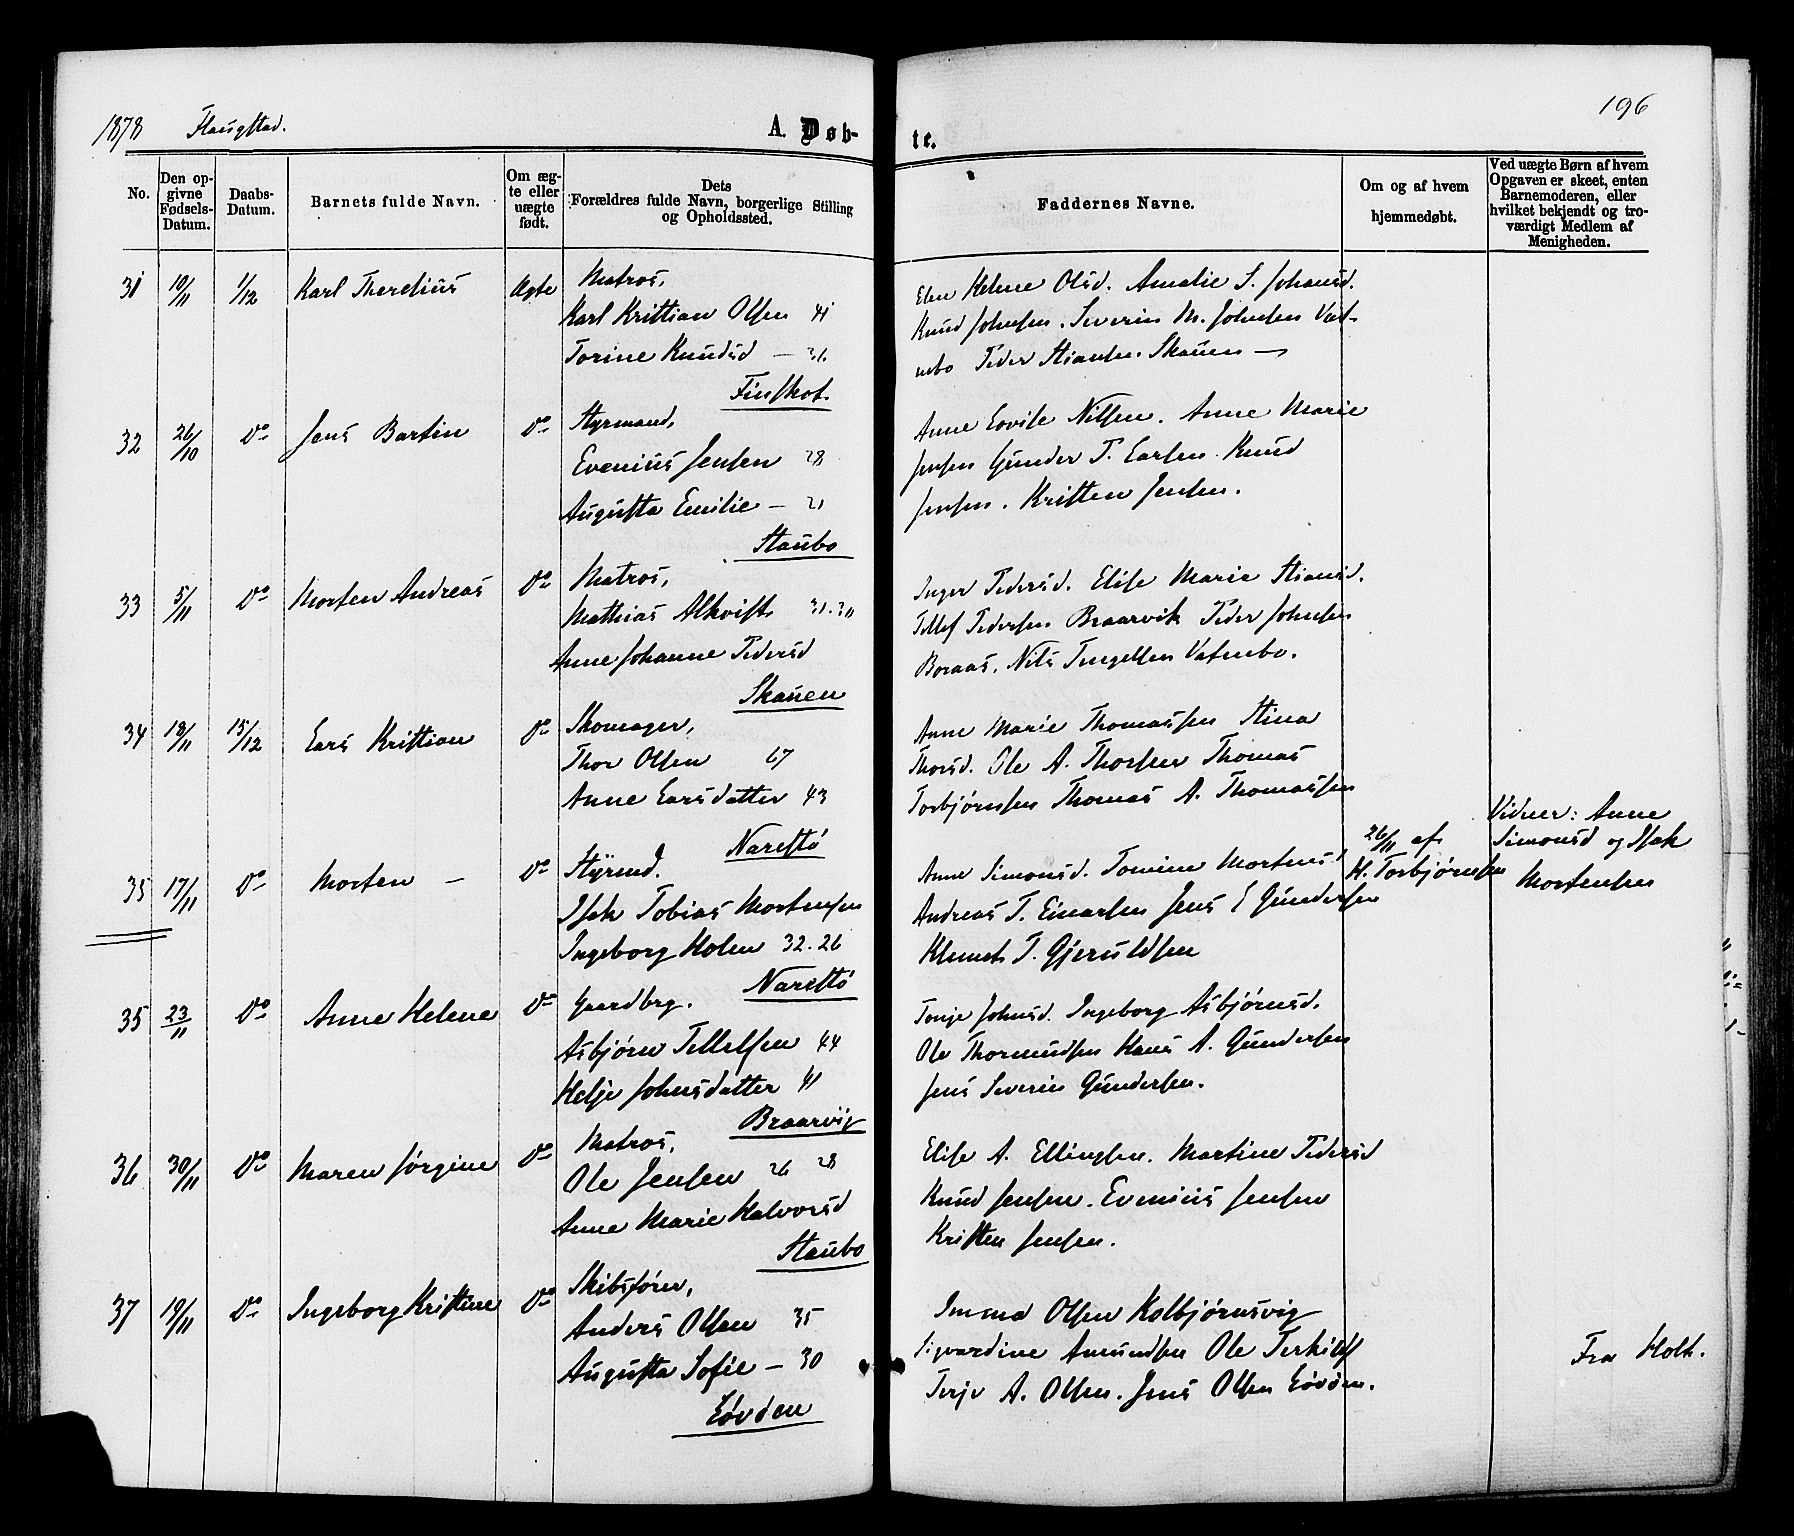 1878 Flangstad. A. Døb- te. 196
No. Den op- givne Fødsels- Datum. Daabs- Datum. Barnets fulde Navn. Om æg- te eller uægte født. Dets Forældres fulde Navn, borgerlige Stilling og Opholdssted. Faddernes Navne. Om og af hvem hjemmedøbt. Ved uægte Børn af hvem Opgaven er skeet, enten Barnemoderen, eller hvilket bekjendt og tro- værdigt Medlem af Menigheden.
31 10/11 1/12 Karl Therelius Ægte Matros,
Karl Kristian Olsen 41
Torine Knudsd — 36
Finskot
Elen Helene Olsd. Amalie S. Johansd.
Knud Johnsen. Severin M. Johnsen Vat-
nebo Peder Stiansen. Skauen —
32 26/10 Do Jens Bartin Do Styrmand,
Evenius Jensen 28
Augusta Emilie — 21
Staubo
Anne Lovise Nilsen. Anne Marie
Jensen Gunder T. Larsen. Knud
Jensen. Kristen Jensen.
33 5/11 Do Morten Andreas Do Matros,
Mathias Alkvist 31.30
Anne Johanne Pedersd
Skauen
Inger Pedersd. Elise Marie Stiansd.
Tellef Pedersen Braarvik Peder Johnsen
Boraas. Nils Tengelsen Vatnebo.
34 18/11 15/12 Lars Kristian Do Skomager,
Thor Olsen 67
Anne Larsdatter 43
Narestö
Anne Marie Thomassen Stina
Thorsd. Ole A. Thorsen Thomas
Torbjørnsen Thomas A. Thomassen
35 17/11 Do Morten — Do Styrmd.
Isak Tobias Mortensen
Ingeborg Holm 32.26
Narestö
Anne Simonsd. Tomine Mortensd
Andreas T. Einarsen Jens E Gundersen
Klemet T. Gjeruldsen
26/11 af
H. Torbjørnsen
Vidner: Anne
Simonsd og Isak
Mortensen
35 23/11 Do Anne Helene Do Gaardbrg.
Asbjørn Tellefsen 44
Helje Johnsdatter 41
Braarvig
Tonje Johnsd. Ingeborg Asbjørnsd.
Ole Thormundsen Hans A. Gundersen
Jens Severin Gundersen.
36 30/11 Do Maren Jørgine Do Matros,
Ole Jensen 26 28
Anne Marie Halvorsd
Staubo
Elise A. Ellingsen. Martine Pedersd
Knud Jensen. Evenius Jensen
Kristen Jensen.
37 19/11 Do Ingeborg Kristine Do Skibsfører,
Anders Olsen 35
Augusta Sofie — 30
Løvdøn
Imma Olsen Kolbjørnsvig
Sigvardine Amundsen Ole Terkilds
Terje A. Olsen. Jens Olsen Løvdøn.
Fra Holt.